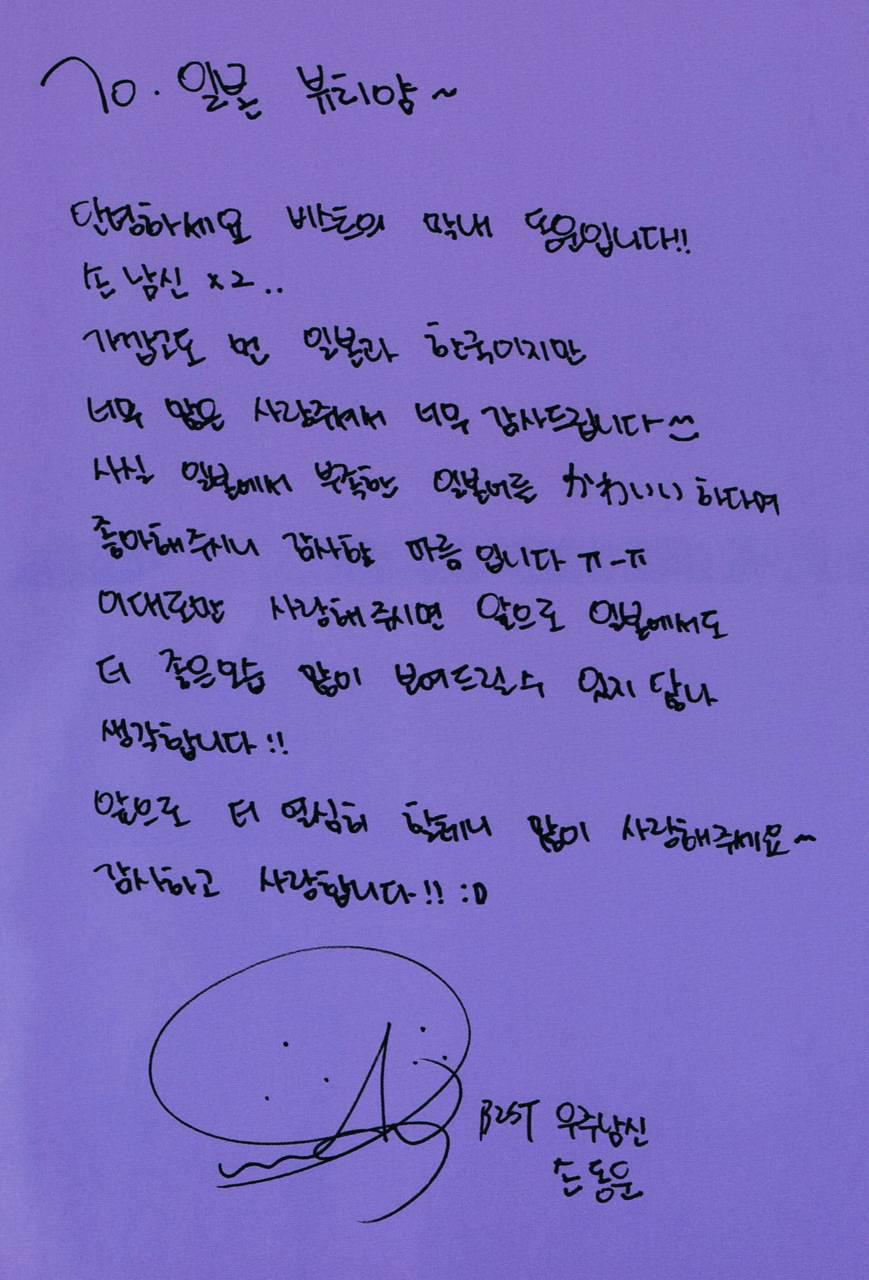 To. 일본 뷰티양~
안녕하세요 비스트의 막내 동운입니다!!
손남신 x2..
가깝고도 먼 일본과 한국이지만
너무 많은 사랑줘서 너무 감사드립니다^^
사실 일본에서 부족한 일본어를 かわいい 하다며
좋아해주시니 감사할 따름입니다 ㅠ-ㅠ
이대로만 사랑해주시면 앞으로 일본에서도
더 좋은모습 많이 보여드릴수 있지 않나
생각합니다!!
앞으로 더 열심히 할테니 많이 사랑해주세요~
감사하고 사랑합니다!! :D
B2ST 우주남신
손동운